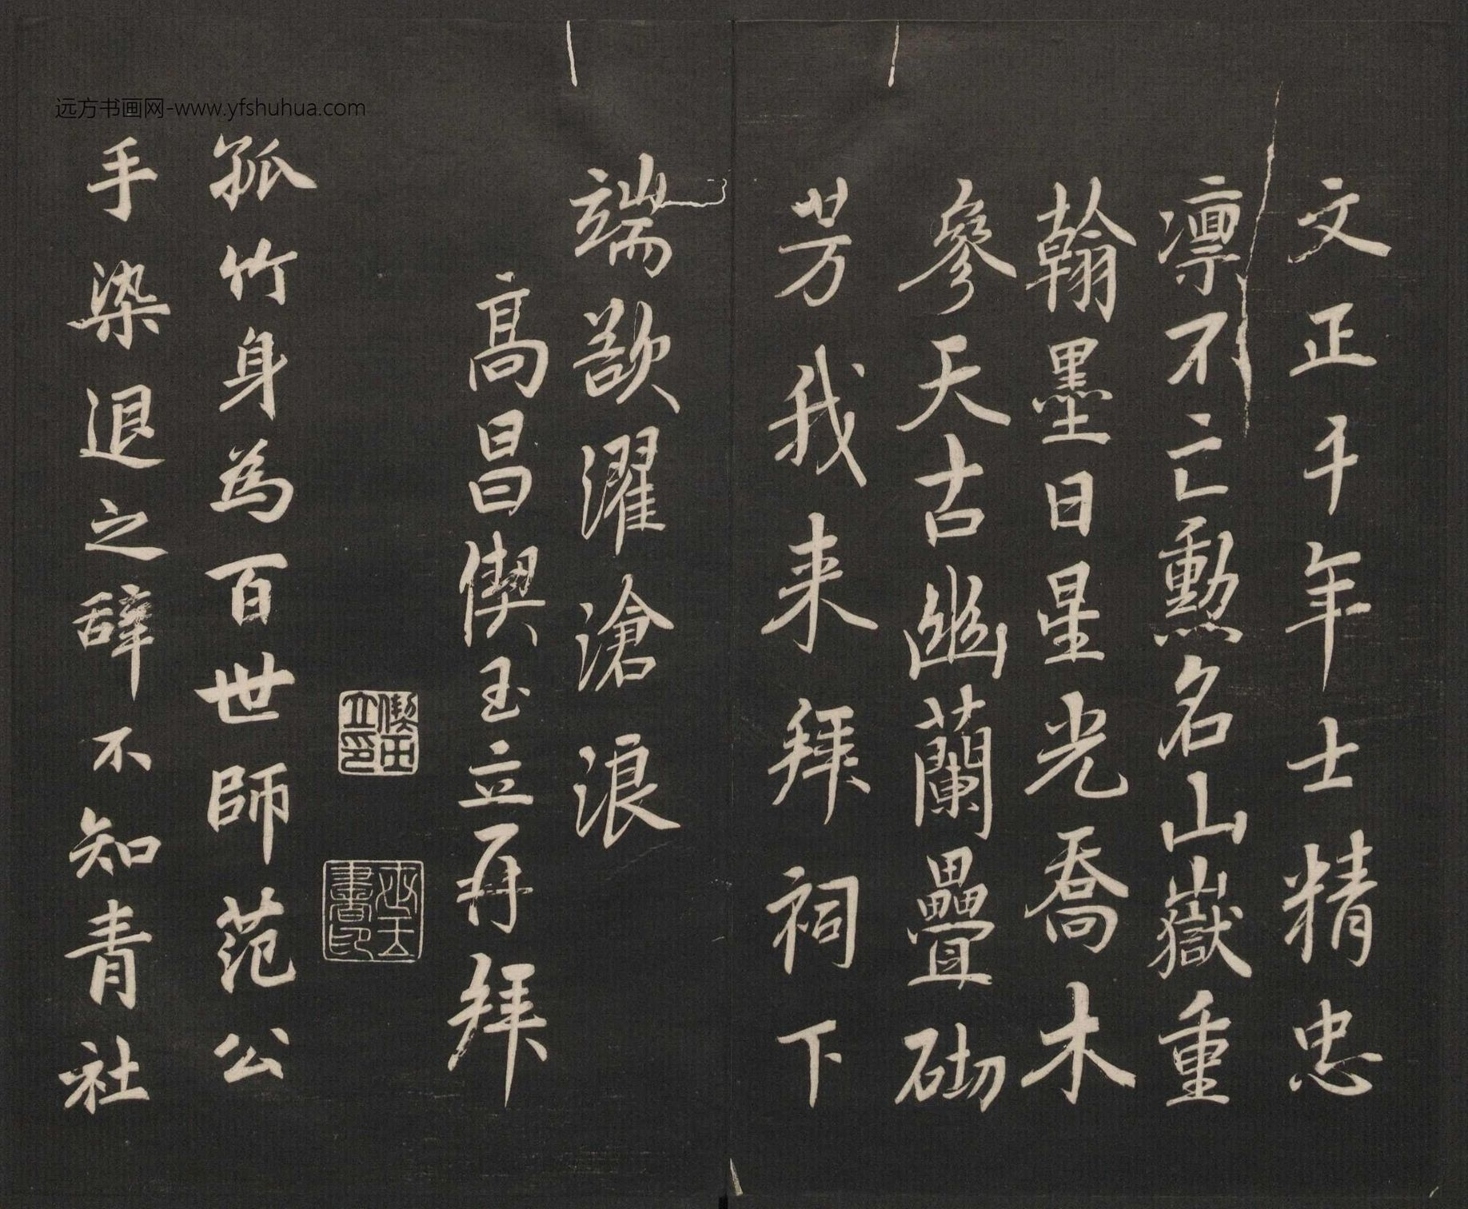 文正千年士精忠
凛不亡勳名山嶽重
翰墨日星光喬木
參天古幽蘭疊砌
芳我来拜祠下
端欲濯滄浪
高昌偰玉立再拜
偰玉立印
孤竹身為百世師范公
手染退之辞不知青社
远方书画网-www.yfshuhua.com